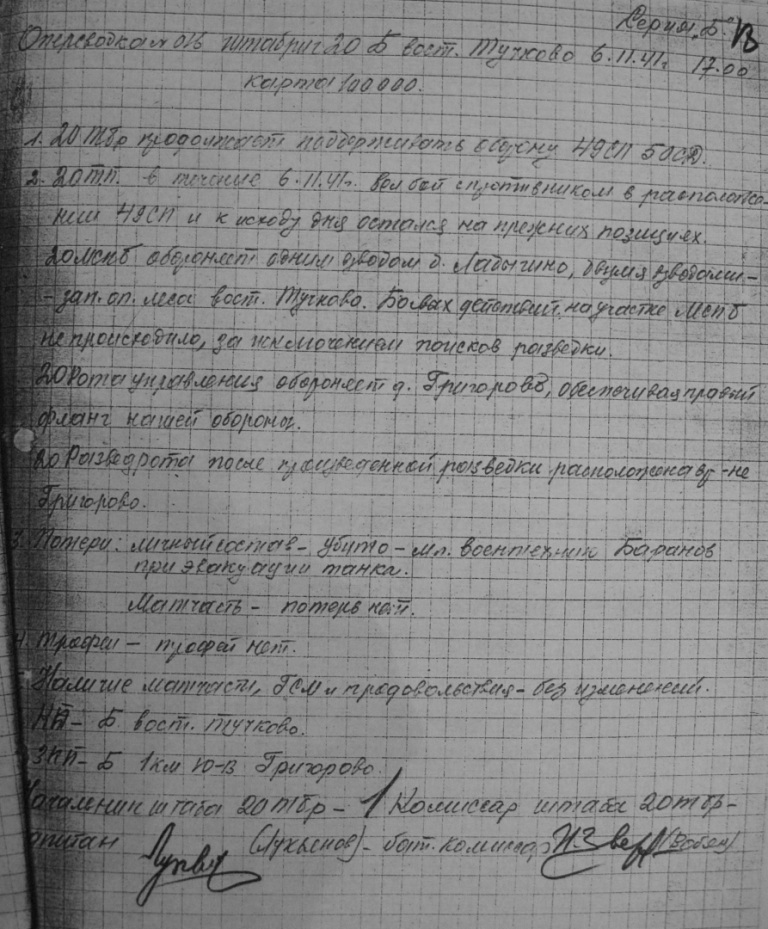 Серия, Б.
Оперсводка № 018 штабриг 20 Б вост. Тучково 6.11.41г. 17.00
карта 100000.
1. 20 Тбр продолжает поддерживать оборону 49СП 50СД.
2. 20ТП. в течение 6.11.41г. вел бой с противником в расположе-
нии 49СП и к исходу дня остался на прежних позициях.
20МСПБ обороняет одним взводом д. Лабычино, двумя взводами-
- зап. оп. леса вост. Тучково. Боевых действий на участке МСПБ
не происходило, за исключением поисков разведки.
20 Рота управления обороняет д. Григорово, обеспечивая правый
фланг нашей обороны.
20 Разведрота после произведенной разведки расположена в р-не
Григорово.
3. Потери: личный состав - убито - мл. воентехник Баранов
при эвакуации танка.
Матчасть - потерь нет.
4. Трофеи - трофей нет.
Наличие матчасти, ГСМ и продовольствия - без изменений.
Б вост. Тучково.
ЗКП - Б 1км ю-в Григорово.
Начальник штаба 20Тбр - Комиссар штаба 20Тбр-
капитан (Лукьянов) - бат. комиссар